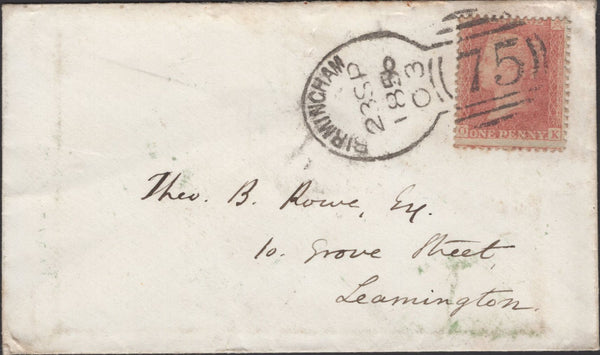 BIRMINGHAM
23 SP
1858
O3
75
ONE PENNY
O K
Theo. B. Rowe, Esq.
10. Grove Street
Leamington.